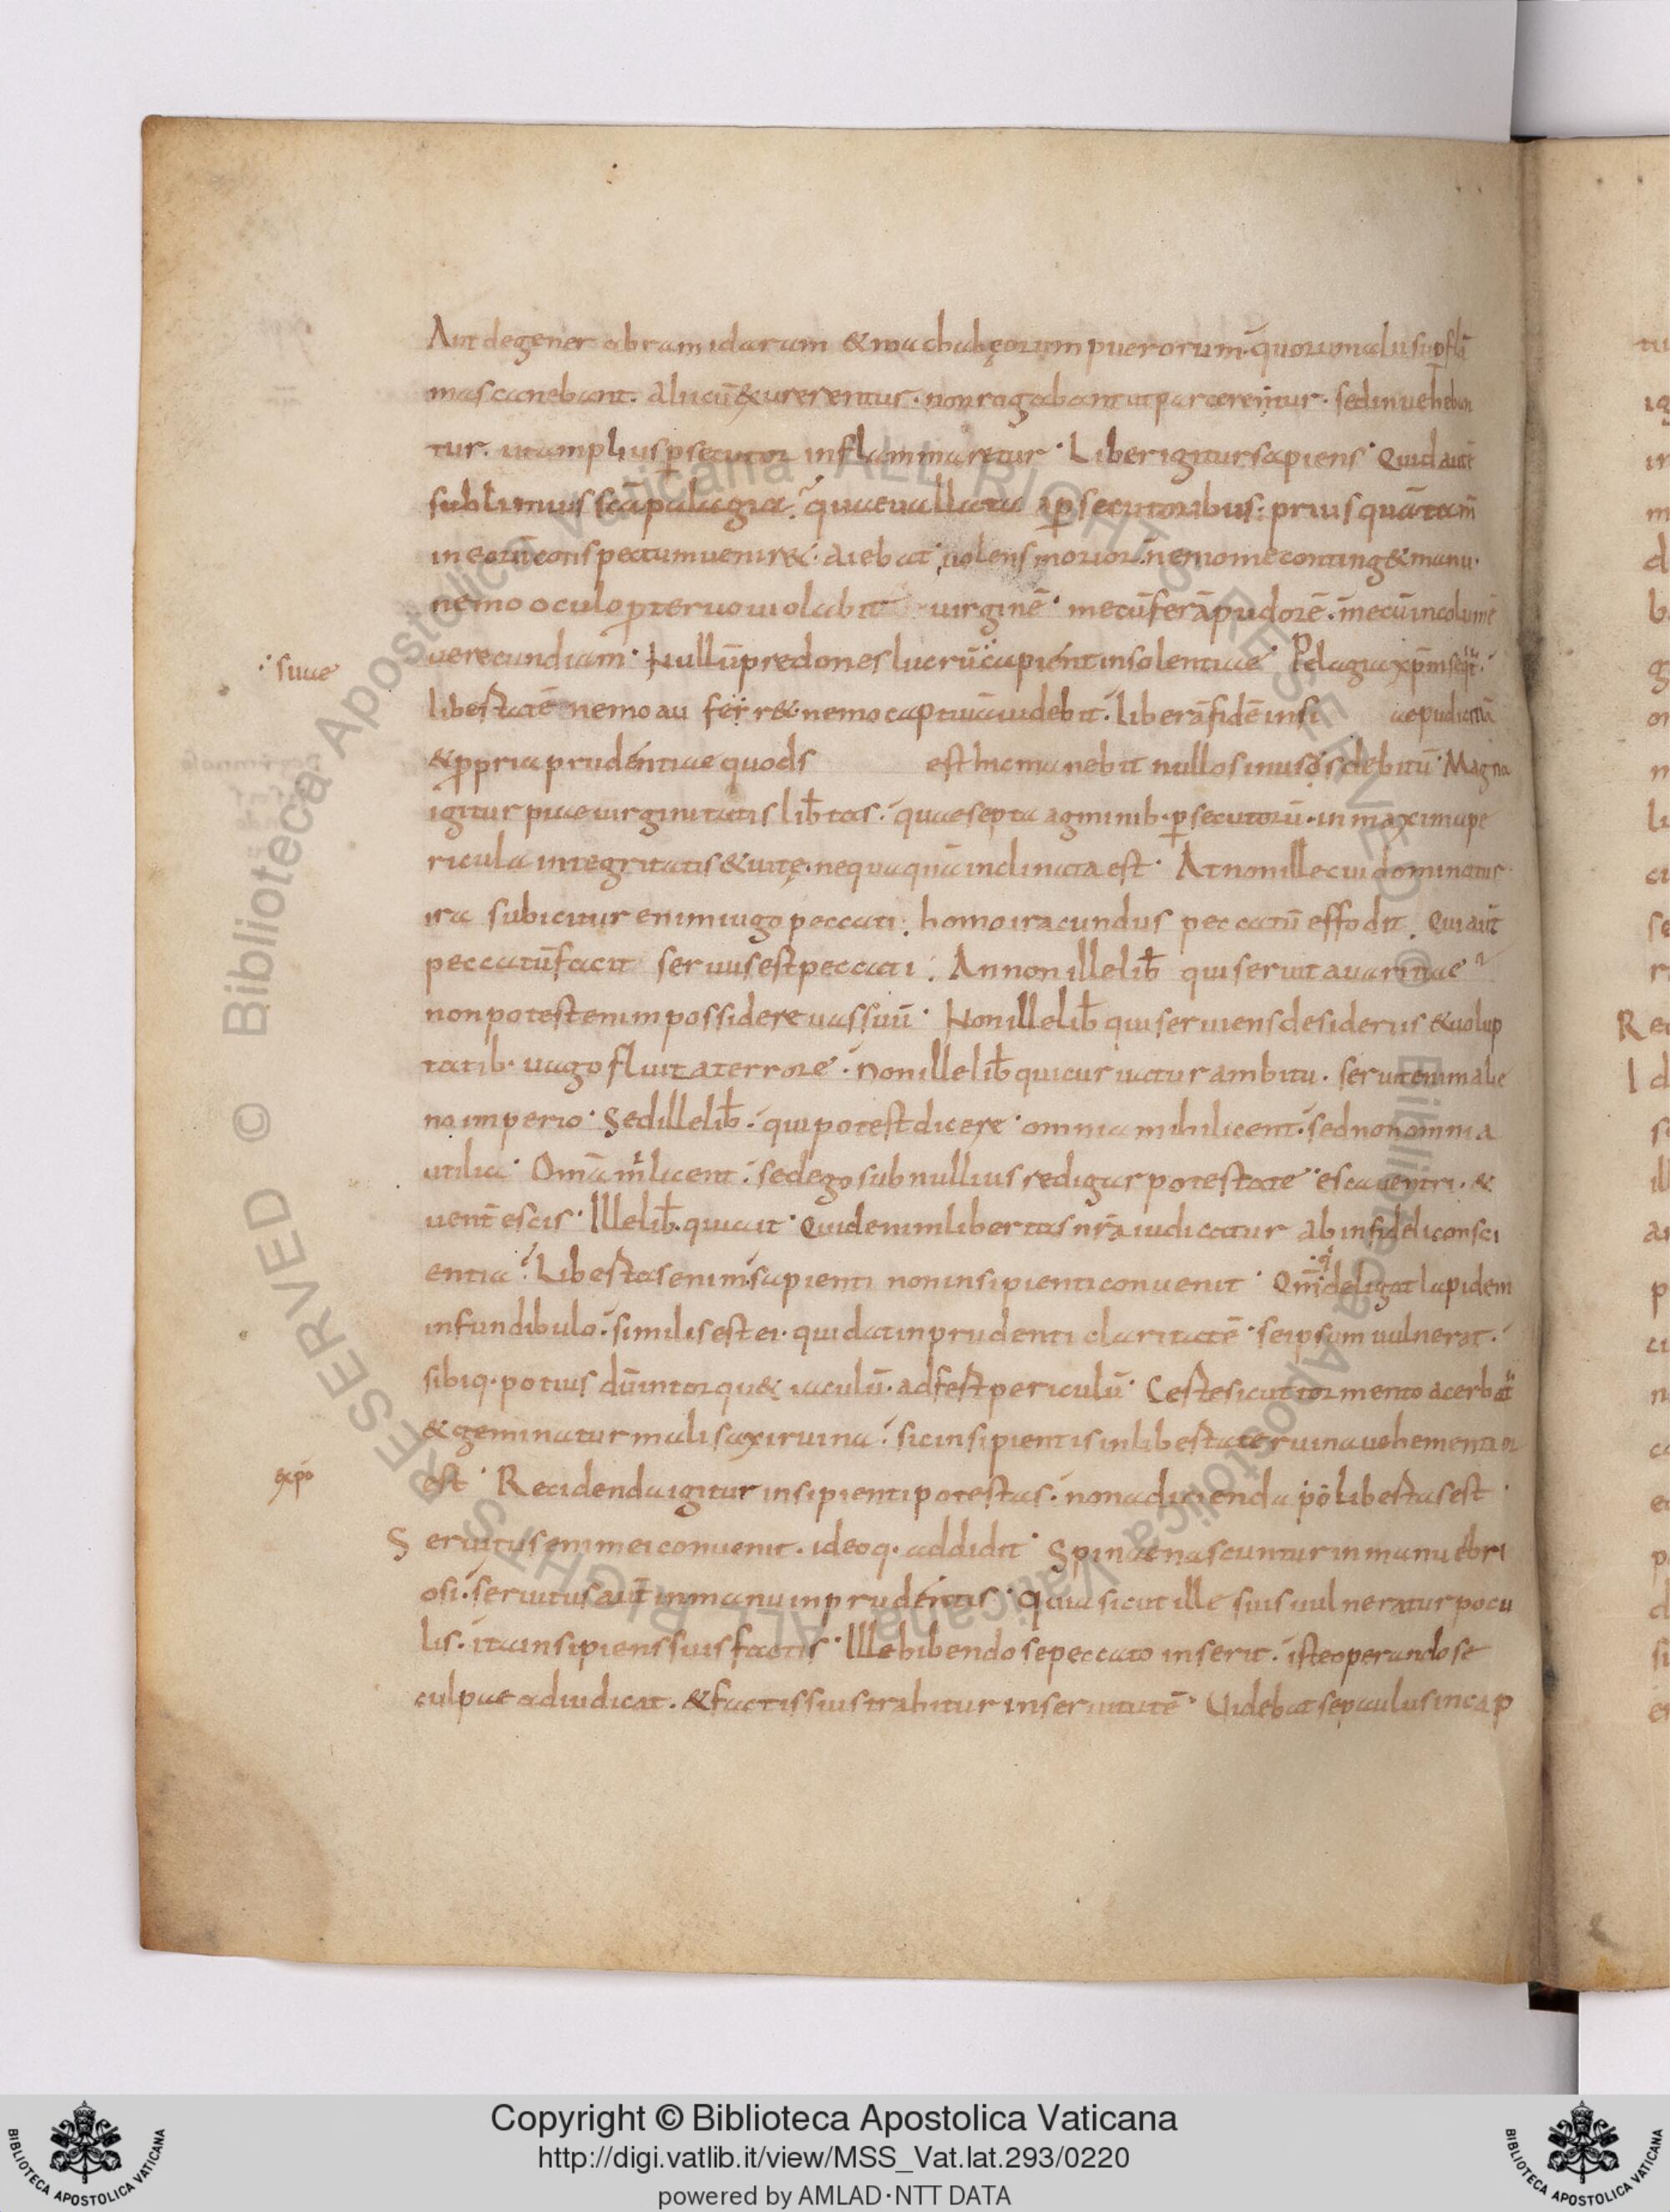 Aut degener abramidarum & machabęorum puerorum. quorum alii sup flā
mas canebant. alii cū exurerentur. non rogabant ut parcerentur. sed inveheban
tur. ut amplius psecutor inflammaretur. Liber igitur sapiens. Quid aut
sublimius scā pelagia? quae vallata a psecutoribus: prius quā tam
in eorū conspectum veniret. aiebat. volens morior. nemo me conting& manu.
nemo oculo pteruo uiolabit virginē. mecū ferā pudorē. mecū incolumē
:suae
uerecundiam. Nullū predones lucrū capient insolentiae. Pelagia xpm seqt.
libertatē nemo auferr& nemo captiuā uidebit. liberā fidē insi aepudicitiā
& ppria prudentiae quod s est hic manebit nullos in usos debitū. Magna
igitur piae uirginitatis libtas. quae septa agminib. psecutorū. in maxima pe
ricula integritatis & uitę. nequaquā inclinata est. At non ille cui dominatur
ira subicitur enim iugo peccati. homo iracundus peccatū effodit. Qui aūt
peccatū facit seruus est peccati. An non ille lib qui seruit auaritiae
non potest enim possidere uas suū. Non ille lib qui seruiens desideriis & uolup
tatib. uago fluitat errore. non ille lib qui curuatur ambitu. seruit enim alie
no imperio. Sed ille lib. qui potest dicere. omnia mihi licent. sed non omnia
utilia. Omā m licent. sed ego sub nullius redigar potestate. esca uentri. &
uent escis. Ille lib. qui ait. Quid enim libertas nrā iudicatur ab infideli consci
entia? Libertas enim sapienti non insipienti conuenit. Qm qi deligat lapidem
in fundibulo. similis est ei. qui dat inprudenti claritatē. seipsum uulnerat.
sibiq. potius dū intorqu& iaculū. adfert periculū. Certe sicut tormento acerbat
& geminatur mali saxi ruina. sic insipientis in libertate ruina uehementior
expo
est. Recidenda igitur insipienti potestas. non adicienda po libertas est.
Seruitus enim ei conuenit. ideoq. addidit. Spinae nascuntur in manu ebri
osi. seruitus aut in manu inprudentis. quia sicut ille suis uulneratur pocu
lis. ita insipiens suis factis. Ille bibendo se peccato inserit. iste operando se
culpae adiudicat. & factis suis trahitur in seruitutē. Uidebat se paulus in cap
Copyright © Biblioteca Apostolica Vaticana
http://digi.vatlib.it/view/MSS_Vat.lat.293/0220
powered by AMLAD·NTT DATA
BIBLIOTECA APOSTOLICA VATICANA
BIBLIOTECA APOSTOLICA VATICANA
© Biblioteca Apostolica Vaticana ALL RIGHTS RESERVED © Biblioteca Apostolica Vaticana ALL RIGHTS RESERVED